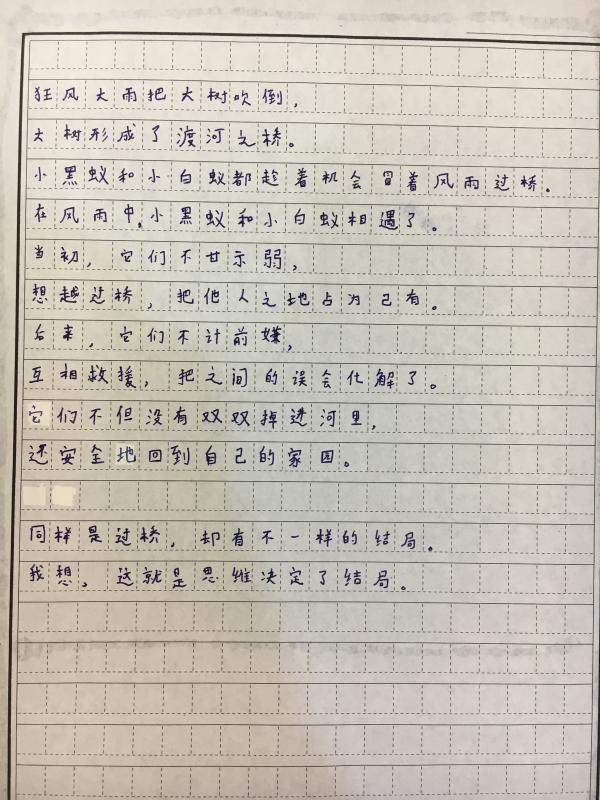 狂风大雨把大树吹倒，
大树形成了渡河之桥。
小黑蚁和小白蚁都趁着机会冒着风雨过桥。
在风雨中，小黑蚁和小白蚁相遇了。
当初，它们不甘示弱，
想越过桥，把他人之地占为己有。
后来，它们不计前嫌，
互相救援，把之间的误会化解了。
它们不但没有双双掉进河里，
还安全地回到自己的家园。
同样是过桥，却有不一样的结局。
我想，这就是思维决定了结局。